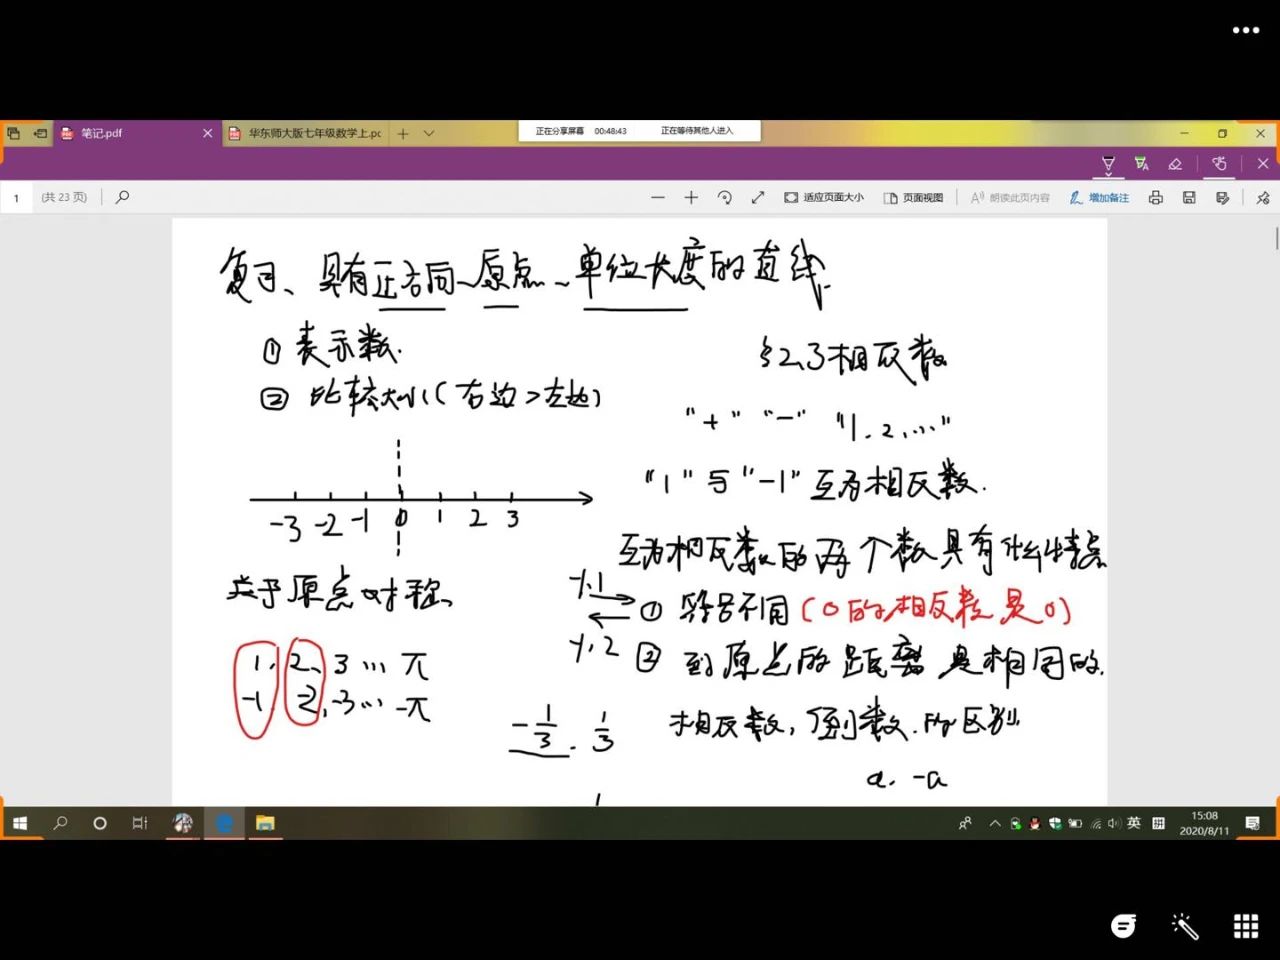 笔记.pdf
华东师大版七年级数学上.pc
正在分享屏幕 00:48:43 正在等待其他人进入
1 (共 23 页)
适应页面大小 页面视图 朗读此页内容 增加备注
复习、具有正方向、原点、单位长度的直线.
① 表示数.
② 比较大小(右边>左边)
-3 -2 -1 0 1 2 3
关于原点对称、
1. 2、3 … π
-1 2, -3 … -π
§2.3 相反数
"+" "-" "1. 2. …"
"1" 与 "-1" 互为相反数.
互为相反数的两个数具有什么特点
① 符号不同 (0的相反数是0)
② 到原点的距离是相同的.
-1/3 . 1/3
相反数, 倒数. 的区别
a. -a
英
15:08
2020/8/11